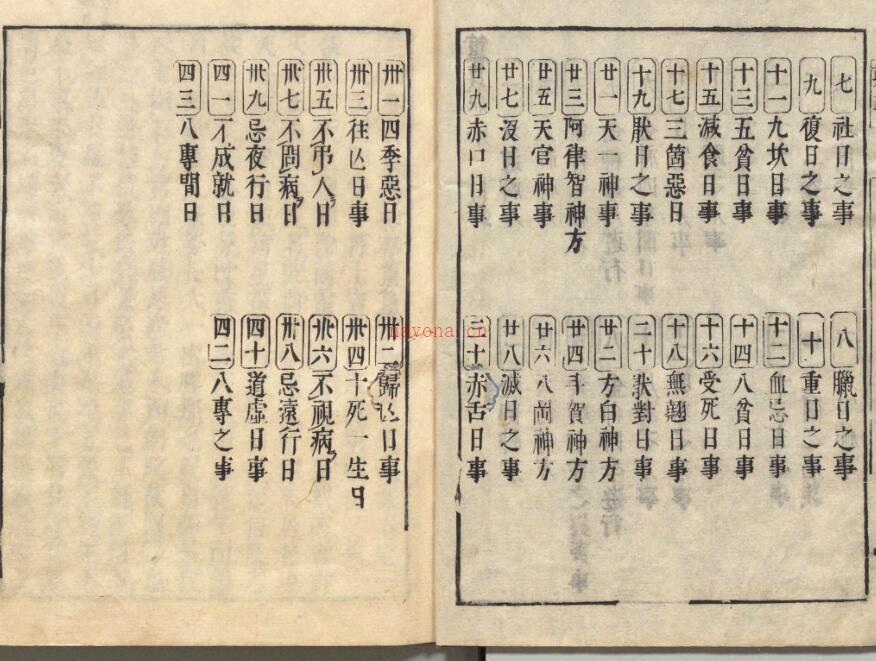 七 社日之事
八 臘日之事
九 復日之事
十 重日之事
十一 九坎日事
十二 血忌日事
十三 五貧日事
十四 八貧日事
十五 減食日事
十六 受死日事
十七 三箇惡日
十八 無翹日事
十九 猒日之事
二十 猒對日事
廿一 天一神事
廿二 方白神方
廿三 阿律智神方
廿四 斗賀神方
廿五 天官神事
廿六 八崗神方
廿七 沒日之事
廿八 滅日之事
廿九 赤口日事
三十 赤舌日事
卅一 四季惡日
卅二 歸亾日事
卅三 往亾日事
卅四 十死一生日
卅五 不弔人日
卅六 不視病日
卅七 不問病日
卅八 忌遠行日
卅九 忌夜行日
四十 道虛日事
四一 不成就日
四二 八專之事
四三 八專間日
nayona.cn